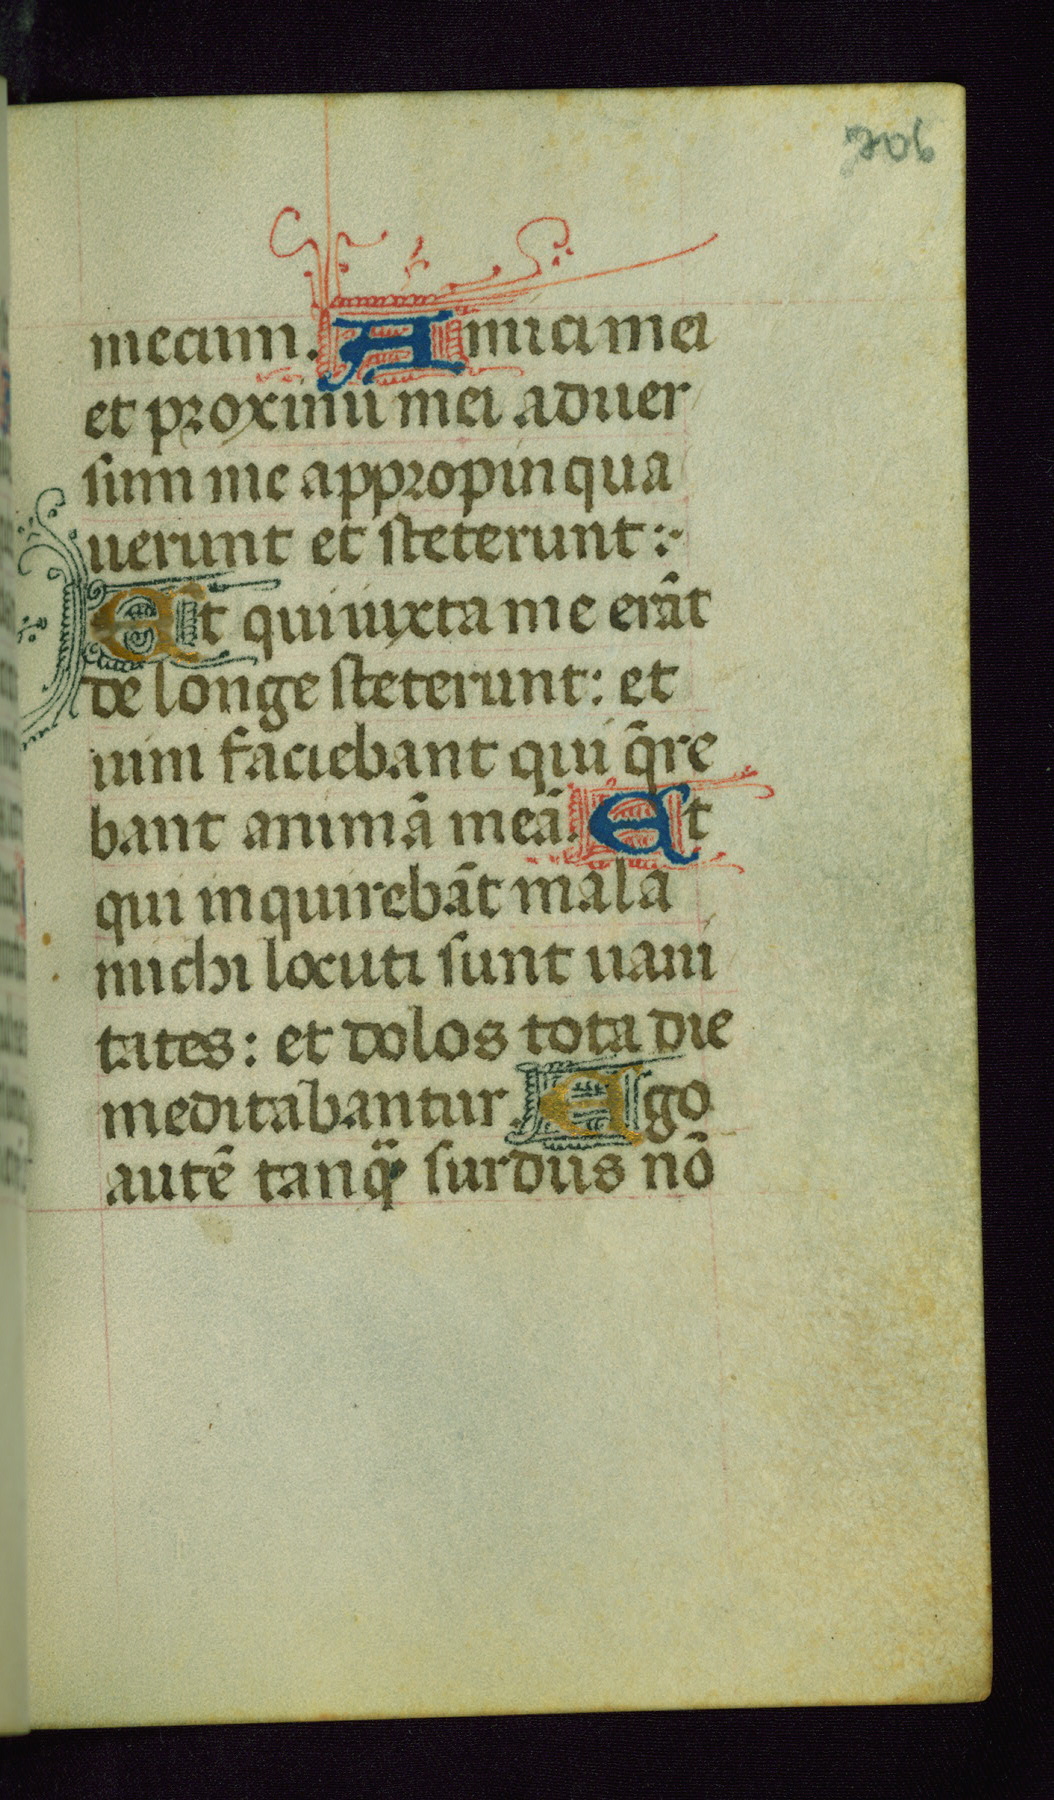 206
mecum. Amici mei
et proximi mei aduer
sum me appropinqua
uerunt et steterunt:
Et qui iuxta me erãt
de longe steterunt: et
uim faciebant qui q̃re
bant animã meã. Et
qui inquirebãt mala
michi locuti sunt uani
tates: et dolos tota die
meditabantur. Ego
autẽ tanq̃ surdus nõ